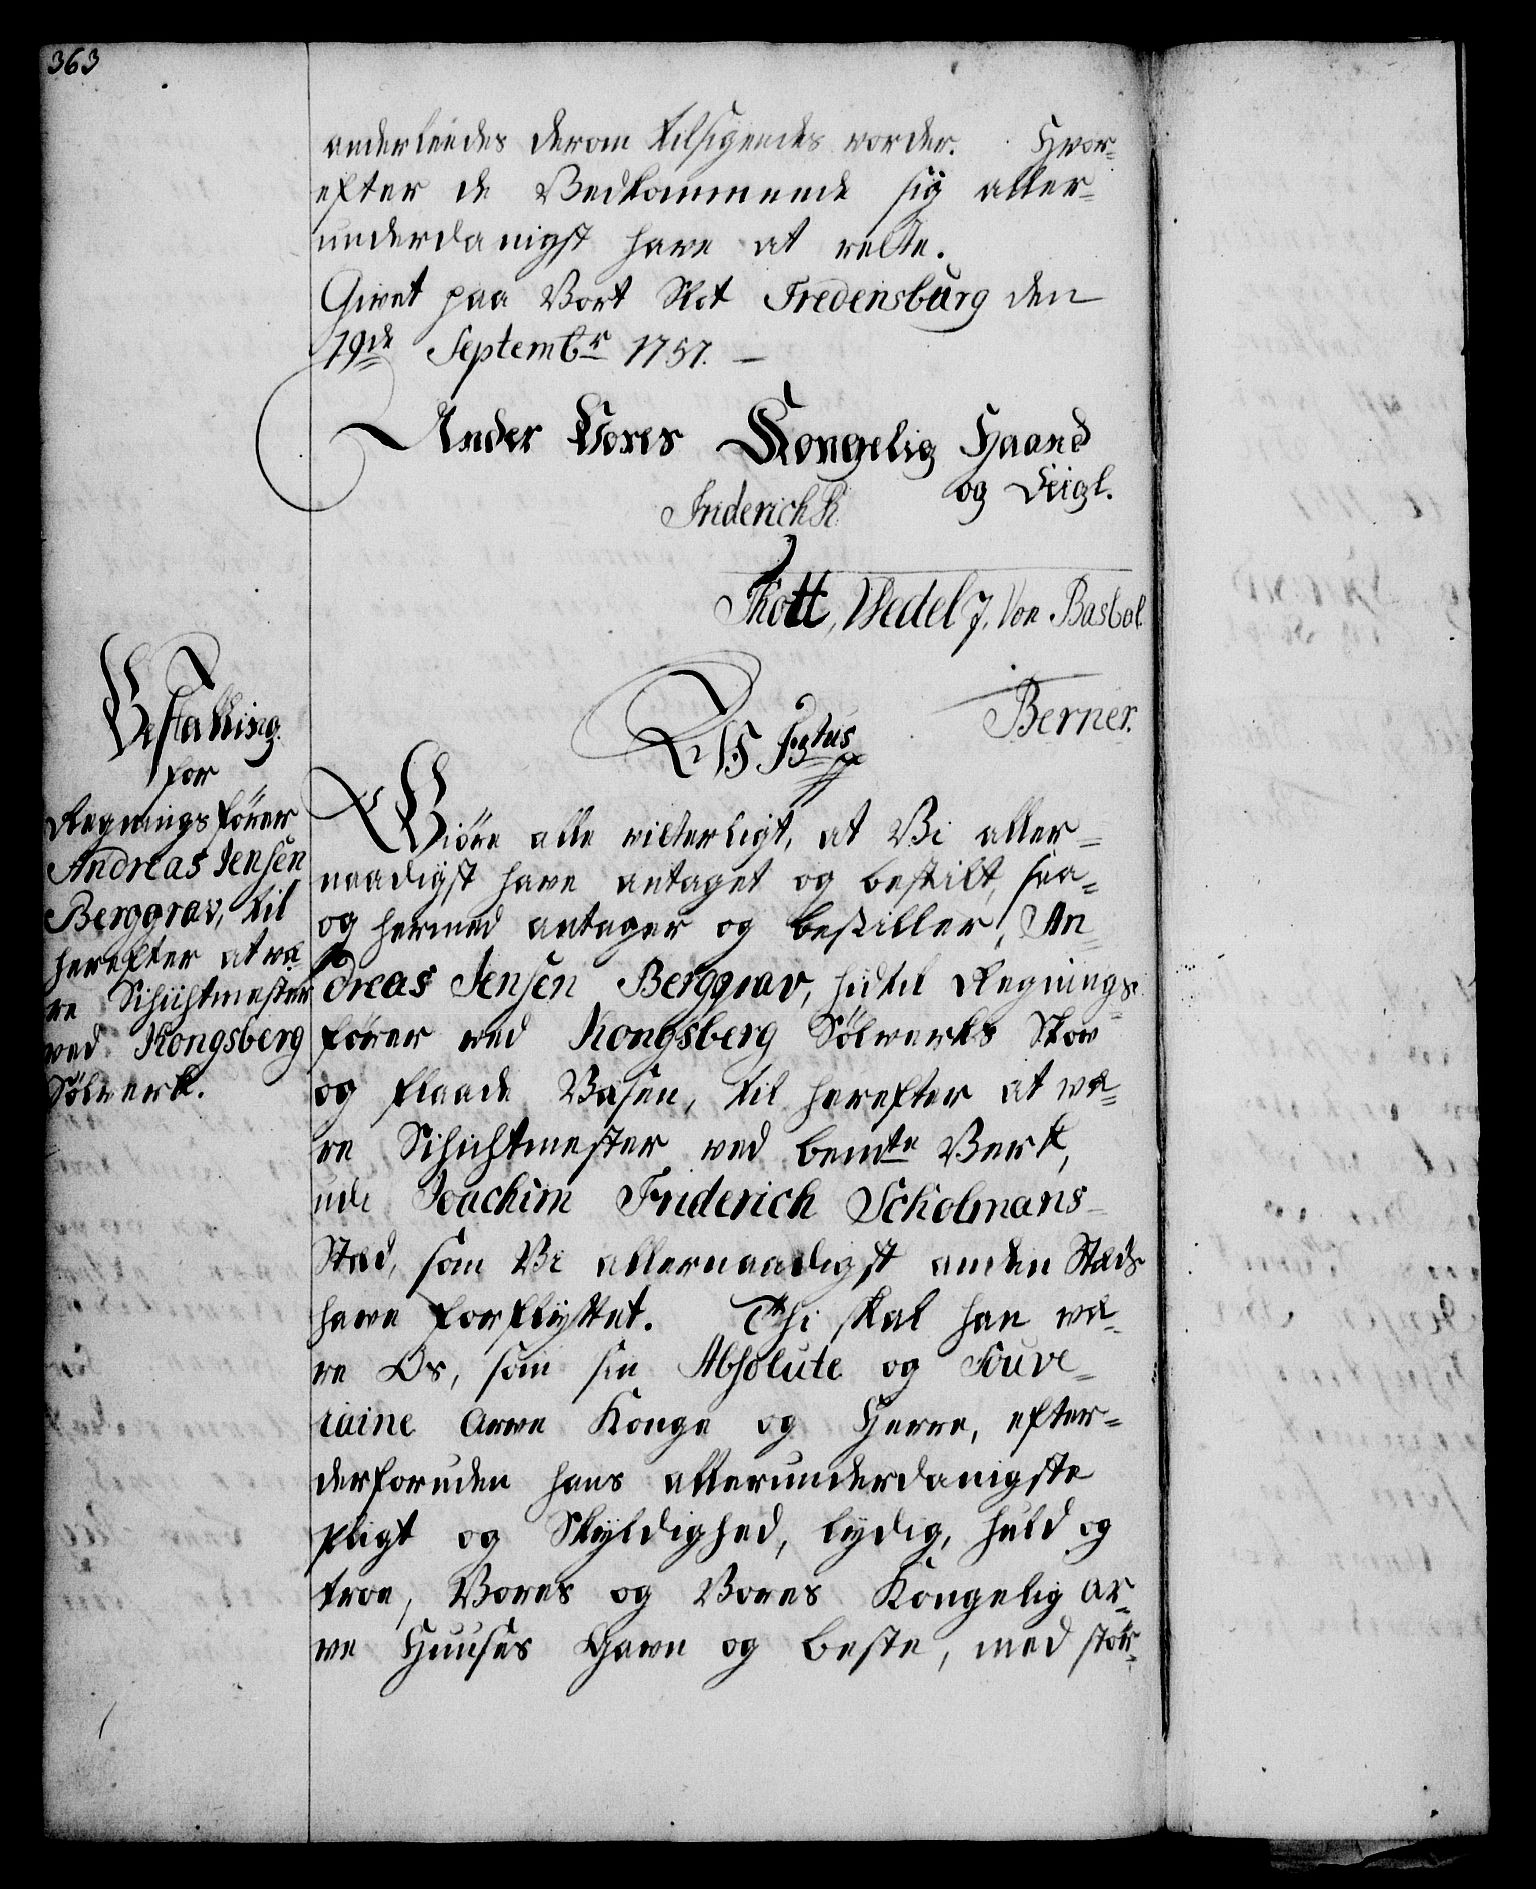 363
anderleedes derom tilsigendes vorder. Hvor=
efter de Vedkommende sig aller=
underdanigst have at rette.
Givet paa Vort Slot Fredensburg den
19de Septembr 1757. —
Under Vores Kongelig Haand
og Seigl.
Friderich R.
Thott, Wedel J. Von Basbal.
Berner.
Bestalling
for
Regningsfører
Andreas Jensen
Berggrav, til
herefter at væ=
re Schichtmester
ved Kongsberg
Sølverk.
Giøre alle vitterligt, at Vi aller=
naadigst have antaget og bestilt, saa=
og hermed antager og bestiller, An=
dreas Jensen Berggrav, hidtil Regnings=
fører ved Kongsberg Sølverks Skov
og flaade Væsen, til herefter at væ=
re Schichtmester ved bemte Verk,
udi Joachim Friderich Scholmans
Stæd, som Vi allernaadigst anden Stæds
have forflyttet. Thi skal han væ=
re Os, som sin Absolute og Souve=
raine Arve Konge og Herre, efter=
derforuden hans allerunderdanigste
pligt og Skyldighed, lydig, huld og
troe, Vores og Vores Kongelig Ar=
ve Huuses Gavn og beste, med stør=